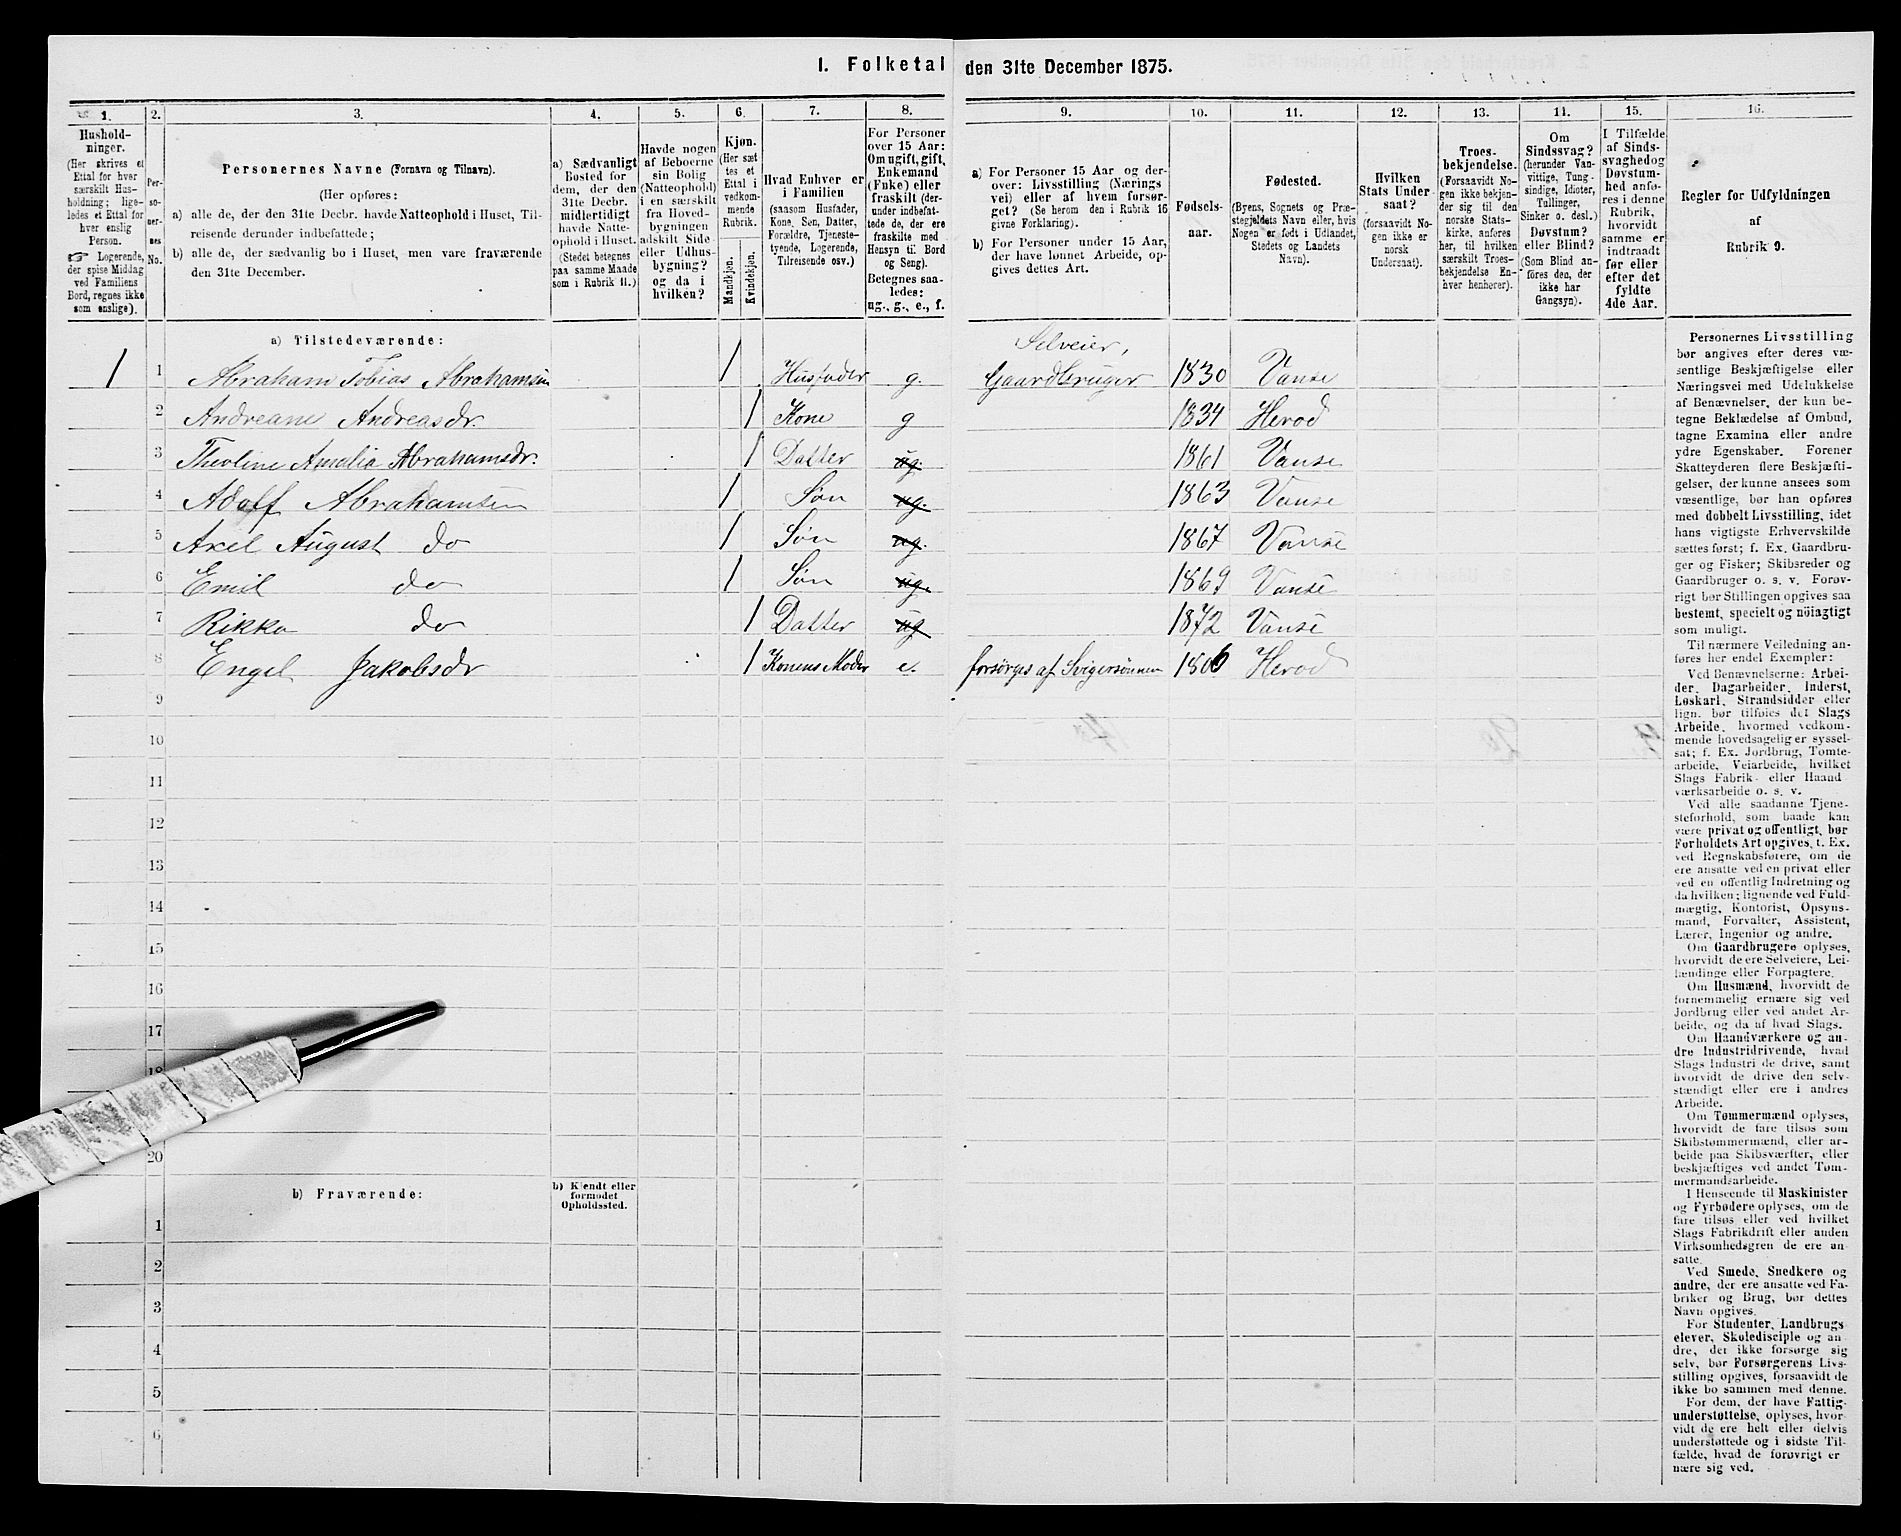 1. Folketal den 31te December 1875.
1. 2. 3. 4. 5. 6. 7. 8. 9. 10. 11. 12. 13. 14. 15. 16.
Hushold-
ninger.
(Her skrives et
Ettal for hver
særskilt Hus-
holdning; lige-
ledes et Ettal for
hver enslig
Person.
☞ Logerende,
der spise Middag
ved Familiens
Bord, regnes ikke
som enslige).
Per-
so-
ner-
nes
No.
Personernes Navne (Fornavn og Tilnavn).
(Her opføres:
a) alle de, der den 31te Decbr. havde Natteophold i Huset, Til-
reisende derunder indbefattede;
b) alle de, der sædvanlig bo i Huset, men vare fraværende
den 31te December.
a) Sædvanligt
Bosted for
dem, der den
31te Decbr.
midlertidigt
havde Natte-
ophold i Huset.
(Stedet betegnes
paa samme Maade
som i Rubrik 11.)
Havde nogen
af Beboerne
sin Bolig
(Natteophold)
i en særskilt
fra Hoved-
bygningen
adskilt Side-
eller Udhus-
bygning?
og da i
hvilken?
Kjøn.
(Her sæt
tes et
Ettal i
vedkom-
mende
Rubrik.
Mandkjøn.
Kvindekjøn.
Hvad Enhver er
i Familien
(saasom Husfader,
Kone, Søn, Datter,
Forældre, Tjeneste-
tyende, Logerende,
Tilreisende osv.)
For Personer
over 15 Aar:
Om ugift, gift,
Enkemand
(Enke) eller
fraskilt (der-
under indbefat-
tede de, der ere
fraskilte med
Hensyn til Bord
og Seng).
Betegnes saa-
ledes:
ug., g., e., f.
a) For Personer 15 Aar og der-
over: Livsstilling (Nærings
vei) eller af hvem forsør-
get? (Se herom den i Rubrik 16
givne Forklaring).
b) For Personer under 15 Aar,
der have lønnet Arbeide, op-
gives dettes Art.
Fødsels-
aar.
Fødested.
(Byens, Sognets og Præ-
stegjeldets Navn eller, hvis
Nogen er født i Udlandet,
Stedets og Landets
Navn).
Hvilken
Stats Under-
saat?
(forsaavidt No-
gen ikke er
norsk
Undersaat).
Troes-
bekjendelse.
(Forsaavidt No-
gen ikke bekjen-
der sig til den
norske Stats-
kirke, anføres
her, til hvilken
særskilt Troes-
bekjendelse En-
hver henhører).
Om
Sindssvag?
(herunder Van-
vittige, Tung-
sindige, Idioter,
Tullinger,
Sinker o. desl.)
Døvstum?
eller Blind?
(Som Blind an-
føres den, der
ikke har
Gangsyn).
I Tilfælde
af Sinds-
svaghed og
Døvstum-
hed anfø-
res i denne
Rubrik,
hvorvidt
samme er
indtraadt
før eller
efter det
fyldte
4de Aar.
Regler for Udfyldningen
af
Rubrik 9.
a) Tilstedeværende:
Selveier,
1 1 Abraham Tobias Abrahamsen 1 Husfader g. Gaardbruger 1830 Vanse
2 Andreane Andreasdr. 1 Kone g 1834 Herod
3 Theoline Amalia Abrahamsdr. 1 Datter ug. 1861 Vanse
4 Adolf Abrahamsen 1 Søn ug. 1863 Vanse
5 Axel August do 1 Søn ug. 1867 Vanse
6 Emil do 1 Søn ug. 1869 Vanse
7 Rikka do 1 Datter ug 1872 Vanse
8 Engel Jakobsdr 1 Konens Moder e. forsørges af Svigersønnen 1806 Herod
9
10
11
12
13
14
15
16
17
18
20
b) Fraværende:
b) Kjendt eller
formodet
Opholdssted.
1
2
3
4
5
6
Personernes Livsstilling
bør angives efter deres væ-
sentlige Beskjæftigelse eller
Næringsvei med Udelukkelse
af Benævnelser, der kun be-
tegne Beklædelse af Ombud,
tagne Examina eller andre
ydre Egenskaber. Forener
Skatteyderen flere Beskjæfti-
gelser, der kunne ansees som
væsentlige, bør han opføres
med dobbelt Livsstilling, idet
hans vigtigste Erhvervskilde
sættes først; f. Ex. Gaardbru-
ger og Fisker; Skibsreder og
Gaardbruger o. s. v. Forøv-
rigt bør Stillingen opgives saa
bestemt, specielt og nöiagtigt
som muligt.
Til nærmere Veiledning an-
føres her endel Exempler:
Ved Benævnelserne: Arbei-
der, Dagarbeider, Inderst,
Løskarl, Strandsidder eller
lign. bør tilføies det Slags
Arbeide, hvormed vedkom-
mende hovedsagelig er syssel-
sat; f. Ex. Jordbrug, Tomte-
arbeide, Veiarbeide, hvilket
Slags Fabrik- eller Haand-
værksarbeide o. s. v.
Ved alle saadanne Tjene-
steforhold, som baade kan
være privat og offentligt, bør
Forholdets Art opgives, f. Ex.
ved Regnskabsførere, om de
ere ansatte ved en privat eller
ved en offentlig Indretning og
da hvilken; lignende ved Fuld-
mægtig, Kontorist, Opsyns-
mand, Forvalter, Assistent,
Lærer, Ingeniør og andre.
Om Gaardbrugere oplyses,
hvorvidt de ere Selveiere, Lei-
lændinge eller Forpagtere.
Om Husmænd, hvorvidt de
fornemmelig ernære sig ved
Jordbrug eller ved andet Ar-
beide, og da af hvad Slags.
Om Haandværkere og an-
dre Industridrivende, hvad
Slags Industri de drive, samt
hvorvidt de drive den selv-
stændigt eller ere i andres
Arbeide.
Om Tømmermænd oplyses,
hvorvidt de fare tilsøs som
Skibstømmermænd, eller ar-
beide paa Skibsværfter, eller
beskjæftiges ved andet Tøm-
mermandsarbeide.
I Henseende til Maskinister
og Fyrbødere oplyses, om de
fare tilsøs eller ved hvilket
Slags Fabrikdrift eller anden
Virksomhedsgren de ere an-
satte.
Ved Smede, Snedkere og
andre, der ere ansatte ved Fa-
briker og Brug, bør dettes
Navn opgives.
For Studenter, Landbrugs-
elever, Skoledisciple og an-
dre, der ikke forsørge sig
selv, bør Forsørgerens Livs-
stilling opgives, forsaavidt de
ikke bo sammen med denne.
For dem, der have Fattig-
understøttelse, oplyses, hvor-
vidt de ere helt eller delvis
understøttede og i sidste Til-
fælde, hvad de forøvrigt er
nære sig ved.